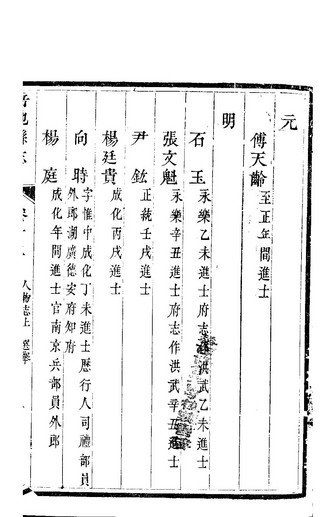 元
傅天齡 至正年間進士
明
石玉 永樂乙未進士府志作洪武乙未進士
張文魁 永樂辛丑進士府志作洪武辛丑進士
尹欽 正統壬戌進士
楊廷貴 成化丙戌進士
向時 字惟中成化丁未進士歷行人司禮部員
外郎湖廣德安府知府
楊庭 成化年間進士官南京兵部員外郎
縣志
人物志上 選舉